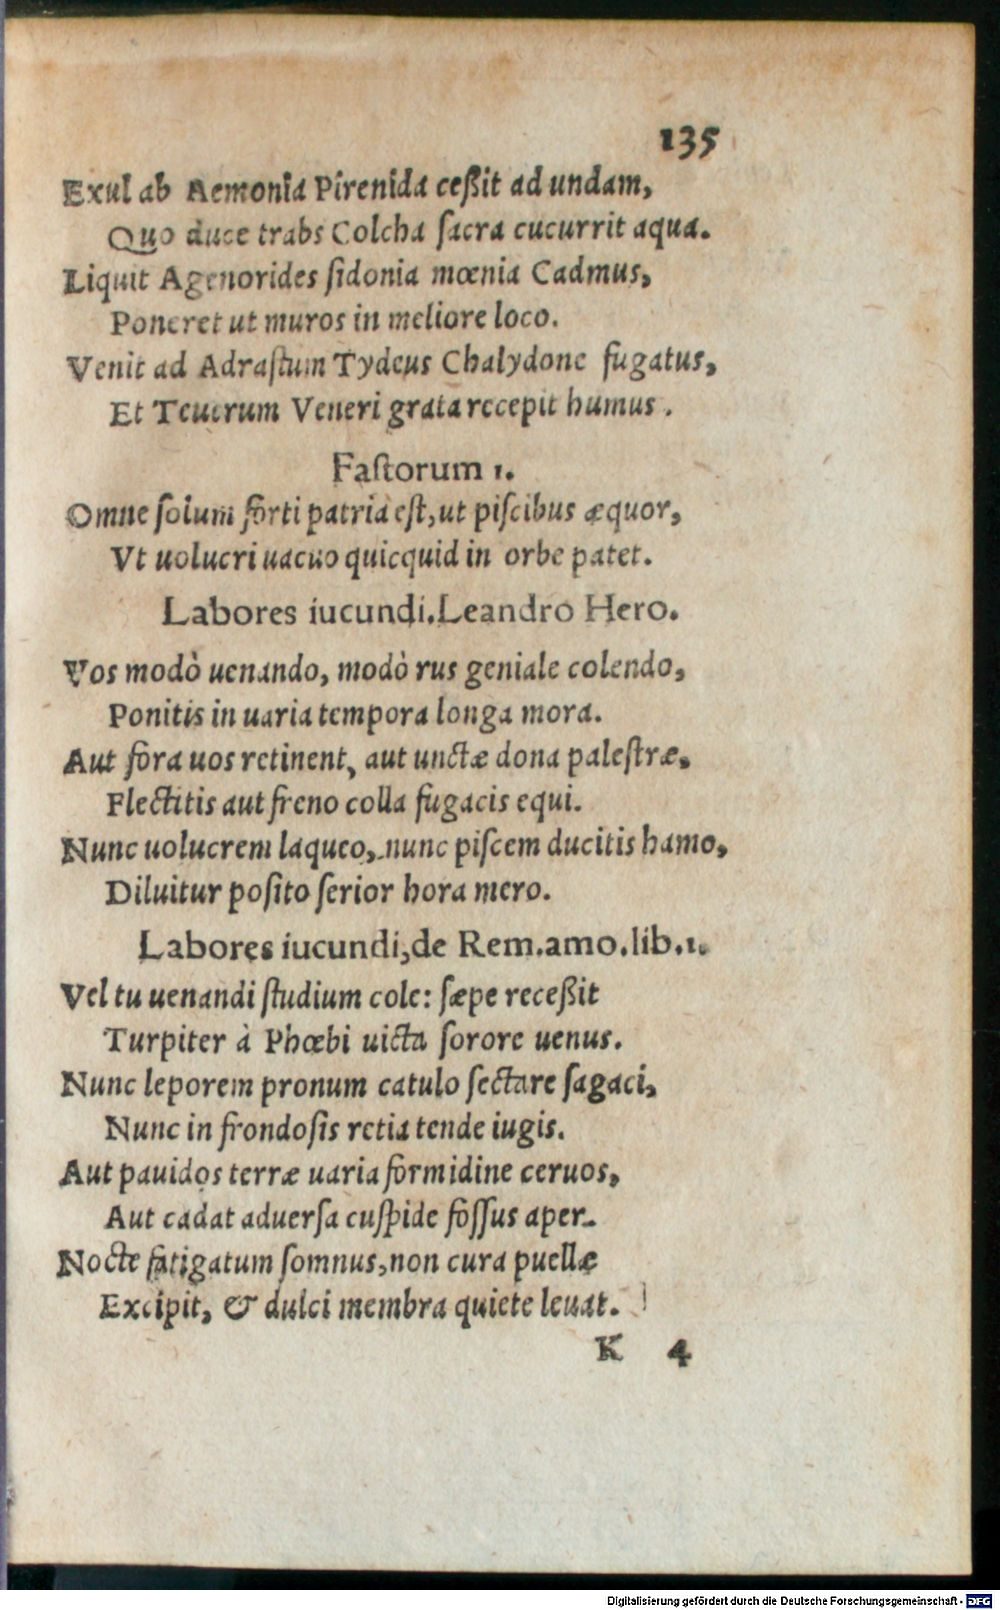 135
Exul ab Aemonia Pirenida ceßit ad undam,
Quo duce trabs Colcha sacra cucurrit aqua.
Liquit Agenorides sidonia mœnia Cadmus,
Poneret ut muros in meliore loco.
Venit ad Adrastum Tydeus Chalydone fugatus,
Et Teucrum Veneri grata recepit humus.
Fastorum 1.
Omne solum forti patria est, ut piscibus æquor,
Vt uolucri uacuo quicquid in orbe patet.
Labores iucundi. Leandro Hero.
Vos modò uenando, modò rus geniale colendo,
Ponitis in uaria tempora longa mora.
Aut fora uos retinent, aut unctæ dona palestræ,
Flectitis aut freno colla fugacis equi.
Nunc uolucrem laqueo, nunc piscem ducitis hamo,
Diluitur posito serior hora mero.
Labores iucundi, de Rem. amo. lib. 1.
Vel tu uenandi studium cole: sæpe receßit
Turpiter à Phœbi uicta sorore uenus.
Nunc leporem pronum catulo sectare sagaci,
Nunc in frondosis retia tende iugis.
Aut pauidos terræ uaria formidine ceruos,
Aut cadat aduersa cuspide fossus aper.
Nocte fatigatum somnus, non cura puellæ
Excipit, & dulci membra quiete leuat.
K 4
Digitalisierung gefördert durch die Deutsche Forschungsgemeinschaft - DFG